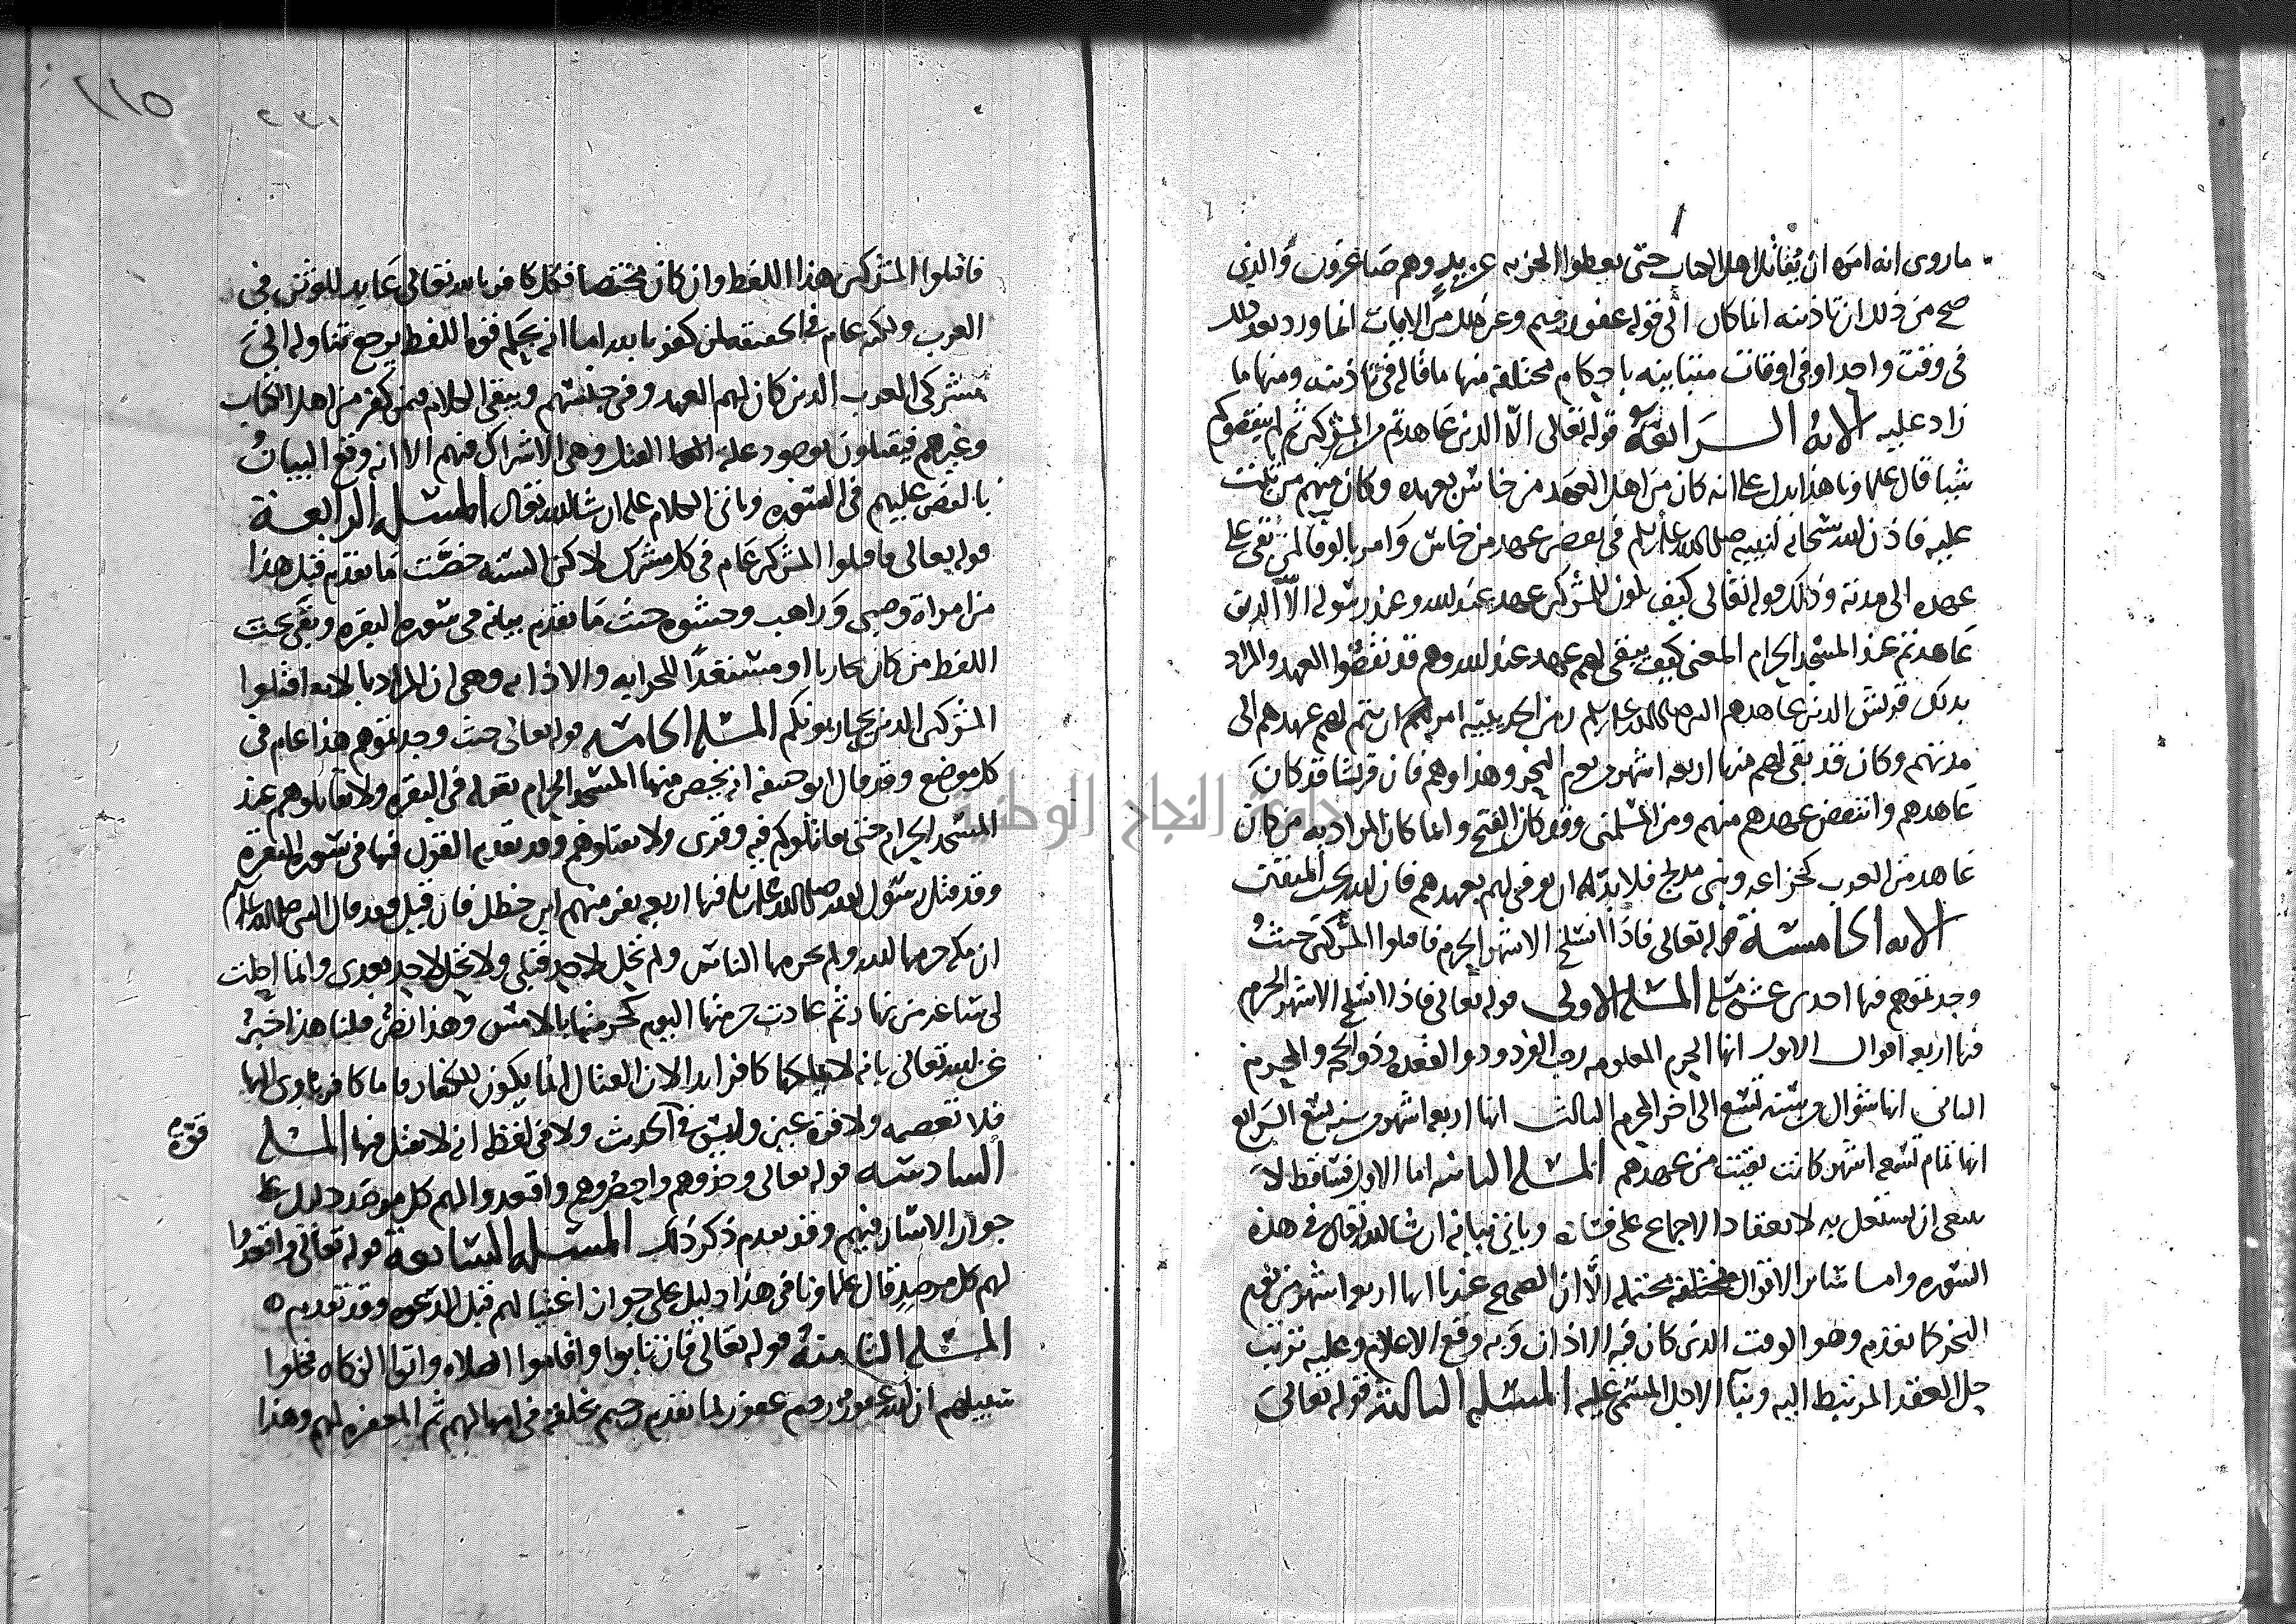 ما روى انه امره ان يقاتل اهل الكتاب حتى يعطوا الجزيه عن يد وهم صاغرون والذي
صح من ذلك ان تاذينه انما كان الى قوله غفور رحيم وغير ذلك من الايات انما ورد بعد ذلك
في وقت واحد او في اوقات متباينه باحكام مختلفه منها ما قاله في تاذينه ومنها ما
زاد عليه الايه الرابعة قوله تعالى الا الذين عاهدتم من المشركين ثم لم ينقصوكم
شيا قال علماونا هذا يدل على انه كان من اهل العهد من خاس بعهده وكان منهم من ثبت
عليه فاذن الله سبحانه لنبيه صلى الله عليه وسلم في نقض عهد من خاس وامر بالوفا لمن بقي على
عهده الى مدته وذلك قوله تعالى كيف يكون للمشركين عهد عند الله وعند رسوله الا الذين
عاهدتم عند المسجد الحرام المعنى كيف يبقى لهم عهد عند الله وهم قد نقضوا العهد والمراد
بذلك قريش الذين عاهدهم النبي صلى الله عليه وسلم زمن الحديبيه امر ان يتم لهم عهدهم الى
مدتهم وكان قد بقى لهم منها اربعه اشهر من يوم النحر وهذا وهم فان قريشا قد كان
عاهدهم وانتقض عهدهم منهم ومن المسلمين وقد كان الفتح وانما كان المراد به من كان
عاهد من العرب كخزاعه وبني مدلج فلا بد له ان يوفى لهم بعهدهم فان الله يحب المتقين
الايه الخامسة قوله تعالى فاذا انسلخ الاشهر الحرم فاقتلوا المشركين حيث
وجدتموهم فيها احدى عشر مسله المسله الاولى قوله تعالى فاذا انسلخ الاشهر الحرم
فيها اربعه اقوال الاول انها الحرم المعلومه رجب الفرد وذوا القعده وذو الحجه والمحرم
الثاني انها شوال من سنة تسع الى اخر المحرم الثالث انها اربعه اشهر من سنه تسع الرابع
انها تمام تسعه اشهر كانت بقيت من عهدهم المسله الثانيه اما الاول فساقط لا
ينبغي ان يشتغل به لانعقاد الاجماع على فساده وياتي بيانه ان شا الله تعالى في هذه
السوره واما سائر الاقوال مختلفه محتمله الا ان الصحيح عندنا انها اربعه اشهر من يوم
النحر كما تقدم وهو الوقت الذي كان فيه الاذان وبه وقع الاعلام وعليه ترتب
حل العقد المرتبط اليه وبنا الاجل المسمى عليه المسله الثالثة قوله تعالى
فاقتلوا المشركين هذا اللفظ وان كان مختصا فكل كافر بالله تعالى عابد للوثن في
العرب ولكنه عام في الحقيقه لمن كفر بالله اما انه بحكم قوة اللفظ يرجع تناوله الى
مشركي العرب الذين كان لهم العهد وفي جنسهم ويبقى الكلام فيمن كفر من اهل الكتاب
وغيرهم فيقتلون بوجود علة القتل وهي الاشراك فيهم الا انه وقع البيان
بالنص عليهم في السوره وياتي الكلام عليه ان شا الله تعالى المسله الرابعة
قوله تعالى فاقتلوا المشركين عام في كل مشرك لاكن السنه خصت ما تقدم قبل هذا
من امراة وصبي وراهب وحشوه حيث ما تقدم بيانه في سورة البقره وبقي تحت
اللفظ من كان محاربا او مستعدا للحرابه والاذايه وهى ان المراد بالايه اقتلوا
المشركين الذين يحاربونكم المسله الخامسه قوله تعالى حيث وجدتموهم هذا عام في
كل موضع وقد قال ابو حنيفه انه يخص منها المسجد الحرام بقوله في البقره ولا تقاتلوهم عند
المسجد الحرام حتى يقاتلوكم فيه وقرى ولا تقتلوهم وقد تقدم القول فيها في سورة البقرة
وقد قتل رسول الله صلى الله عليه وسلم فيها اربعه نفر منهم ابن خطل فان قيل فقد قال النبي صلى الله عليه وسلم
ان مكه حرمها الله ولم يحرمها الناس ولم تحل لاحد قبلي ولا تحل لاحد بعدى وانما احلت
لى ساعه من نهار ثم عادت حرمتها اليوم كحرمتها بالامس وهذا نص قلنا هذا خبر
عن الله تعالى بانه لا يملكها كافر ابدا لان القتال انما يكون للكفار فاما كافر ياوى اليها
فلا تعصمه ولا قرة عين وليس في الحديث ولا في لفظه انه لا يقتل فيها المسله
قوة
السادسه قوله تعالى وخذوهم واحصروهم واقعدوا لهم كل مرصد دليل على
جواز الاسار فيهم وقد تقدم ذكر ذلك المسله السابعة قوله تعالى واقعدوا
لهم كل مرصد قال علماونا في هذا دليل على جواز اغتيالهم قبل الدعوه وقد تقدم ه
المسله الثامنة قوله تعالى فان تابوا واقاموا الصلاه واتوا الزكاه فخلوا
سبيلهم ان الله غفور رحيم غفور لما تقدم رحيم بخلقه في امهالهم ثم المغفره لهم وهذا
جامعة النجاح الوطنية